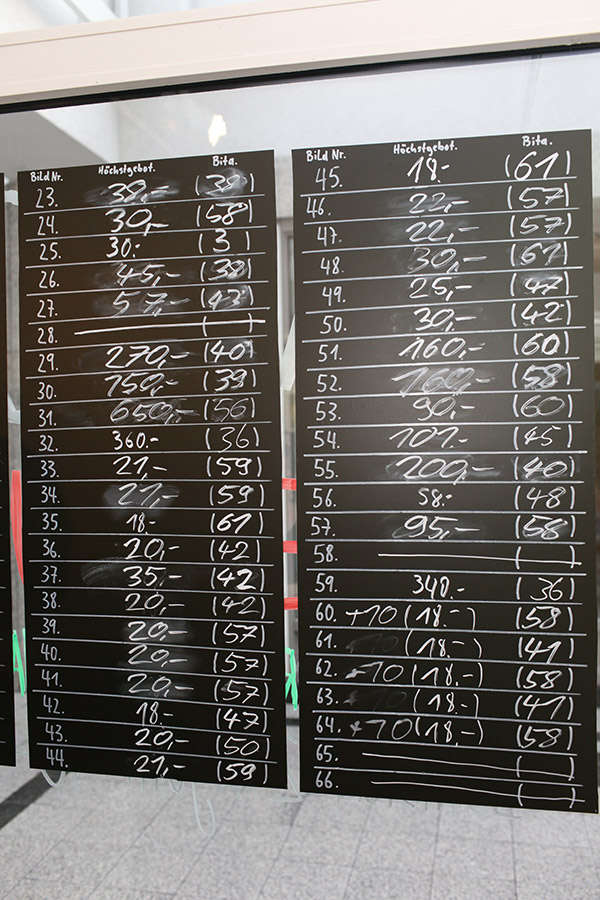 Bild Nr. Höchstgebot. Bita.
23. 38,- (39)
24. 30,- (58)
25. 30.- (3)
26. 45,- (39)
27. 57,- (43)
28. ( )
29. 270,- (40)
30. 750,- (39)
31. 650,- (56)
32. 360.- (36)
33. 21,- (59)
34. 21,- (59)
35. 18.- (61)
36. 20,- (42)
37. 35,- (42)
38. 20,- (42)
39. 20,- (57)
40. 20,- (57)
41. 20,- (57)
42. 18.- (47)
43. 20,- (50)
44. 21,- (59)
Bild Nr. Höchstgebot. Bita.
45. 18.- (61)
46. 22,- (57)
47. 22,- (57)
48. 30,- (61)
49. 25,- (47)
50. 30,- (42)
51. 160,- (60)
52. 160,- (58)
53. 90,- (60)
54. 101.- (45)
55. 200,- (40)
56. 58.- (48)
57. 95,- (58)
58. ( )
59. 340.- (36)
60. +70 (18.-) (58)
61. (18.-) (41)
62. +70 (18.-) (58)
63. (18.-) (41)
64. +70 (18.-) (58)
65. ( )
66. ( )